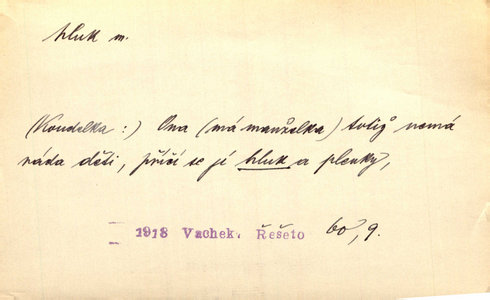 hluk m.
(Koudelka:) Ona (má manželka) totiž nemá
ráda děti, příčí se jí hluk a plenky,
1918 Vachek, Řešeto 60, 9.